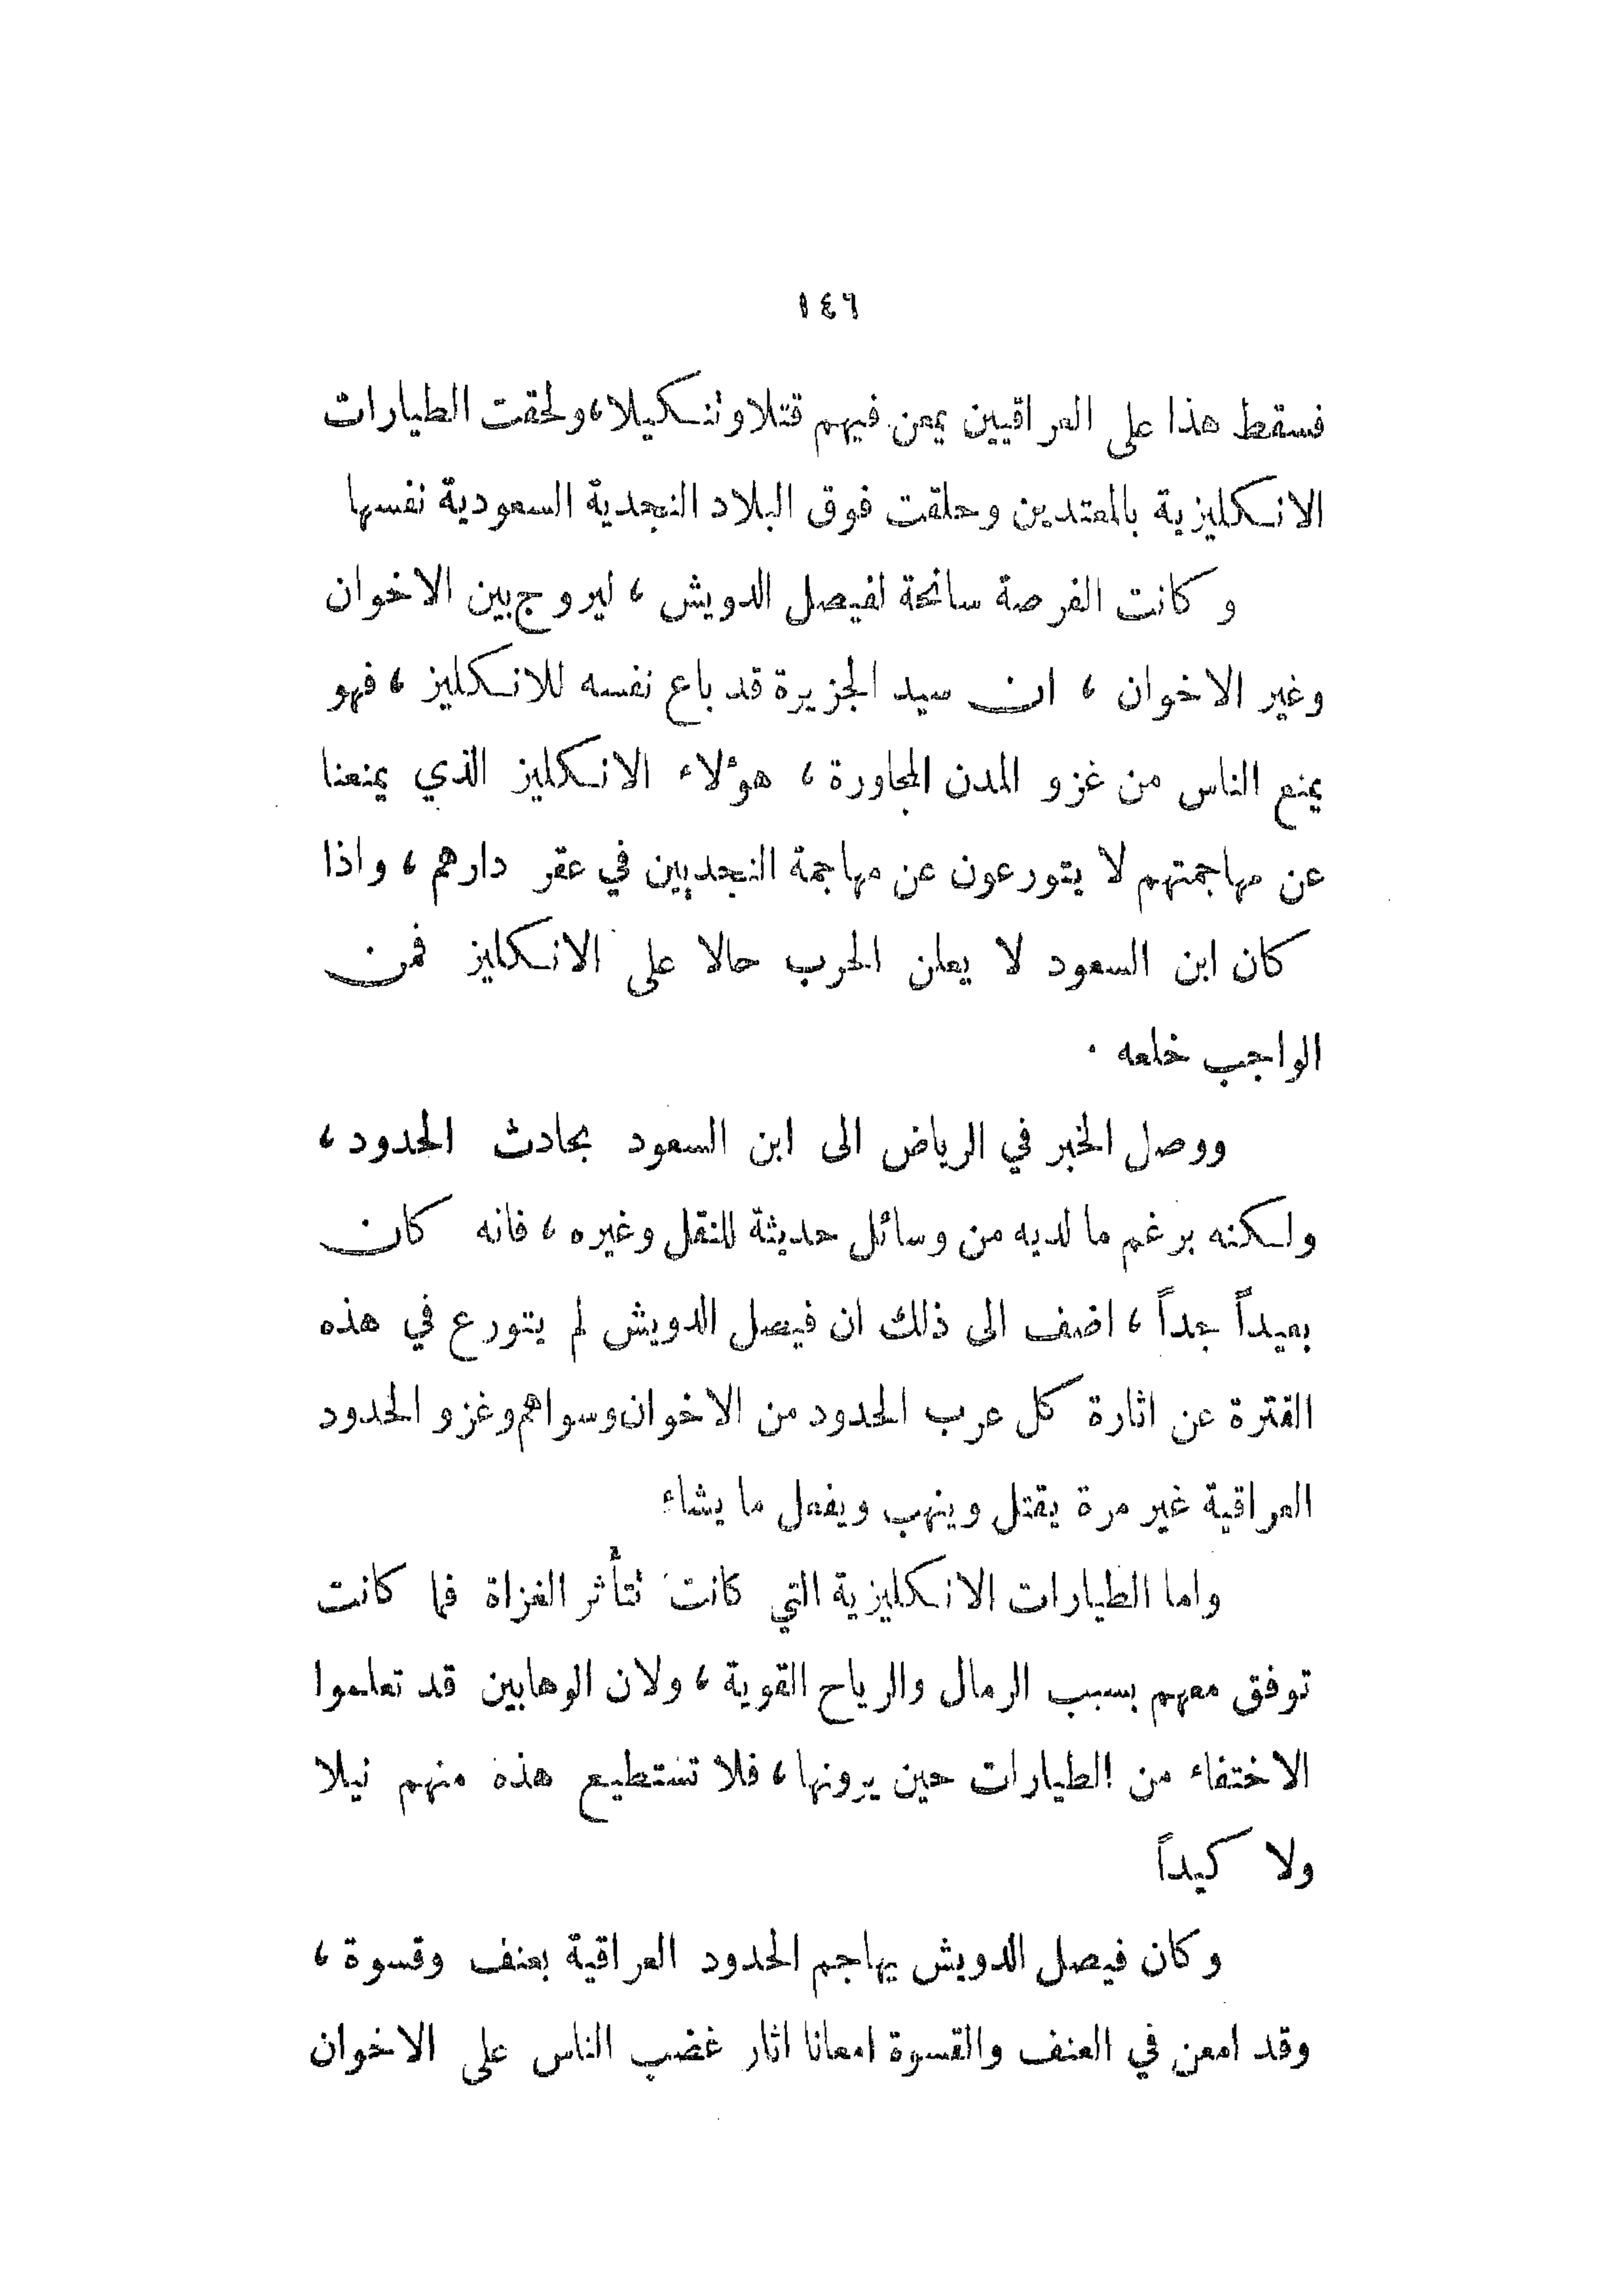 ١٤٦
فسقط هذا على العراقيين يمعن فيهم قتلا وتنكيلا، ولحقت الطيارات
الانكليزية بالمعتدين وحلقت فوق البلاد النجدية السعودية نفسها
وكانت الفرصة سانحة لفيصل الدويش، ليروج بين الاخوان
وغير الاخوان، ان سيد الجزيرة قد باع نفسه للانكليز، فهو
يمنع الناس من غزو المدن المجاورة، هؤلاء الانكليز الذي يمنعنا
عن مهاجمتهم لا يتورعون عن مهاجمة النجديين في عقر دارهم، واذا
كان ابن السعود لا يعلن الحرب حالا على الانكليز فمن
الواجب خلعه .
ووصل الخبر في الرياض الى ابن السعود بحادث الحدود،
ولكنه برغم ما لديه من وسائل حديثة للنقل وغيره، فانه كان
بعيداً جداً، اضف الى ذلك ان فيصل الدويش لم يتورع في هذه
الفترة عن اثارة كل عرب الحدود من الاخوان وسواهم وغزو الحدود
العراقية غير مرة يقتل وينهب ويفعل ما يشاء
واما الطيارات الانكليزية التي كانت تتأثر الغزاة فما كانت
توفق معهم بسبب الرمال والرياح القوية، ولان الوهابين قد تعلموا
الاختفاء من الطيارات حين يرونها، فلا تستطيع هذه منهم نيلا
ولا كيداً
وكان فيصل الدويش يهاجم الحدود العراقية بعنف وقسوة،
وقد امعن في العنف والقسوة امعانا اثار غضب الناس على الاخوان